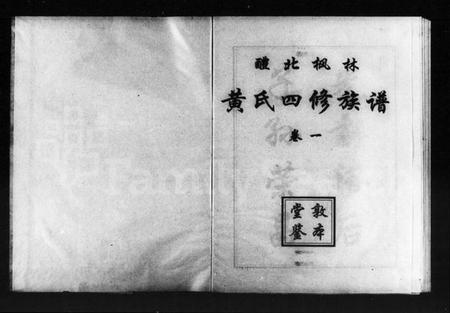 醴北枫林
黄氏四修族谱
卷一
敦本
堂鉴
FamilySearch